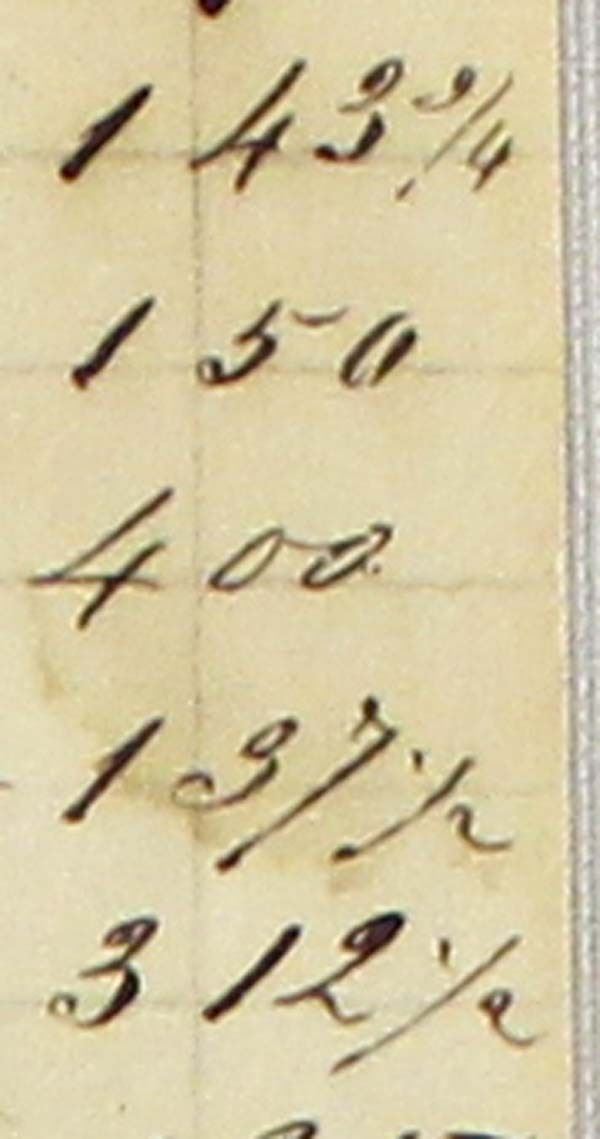 1 43 3/4
1 50
4 00
1 37 1/2
3 12 1/2